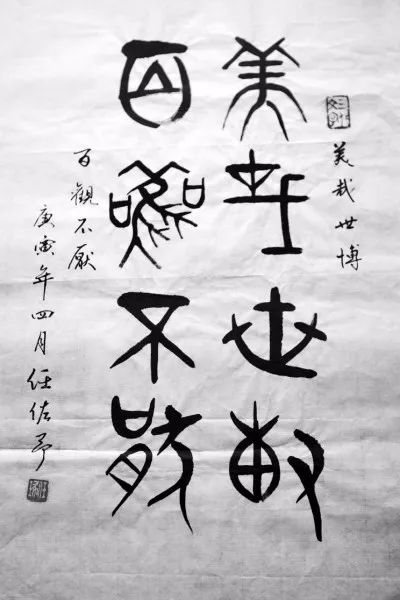 美哉世博
美哉世博
百觀不厭
百觀不厭
庚寅年四月任佐予